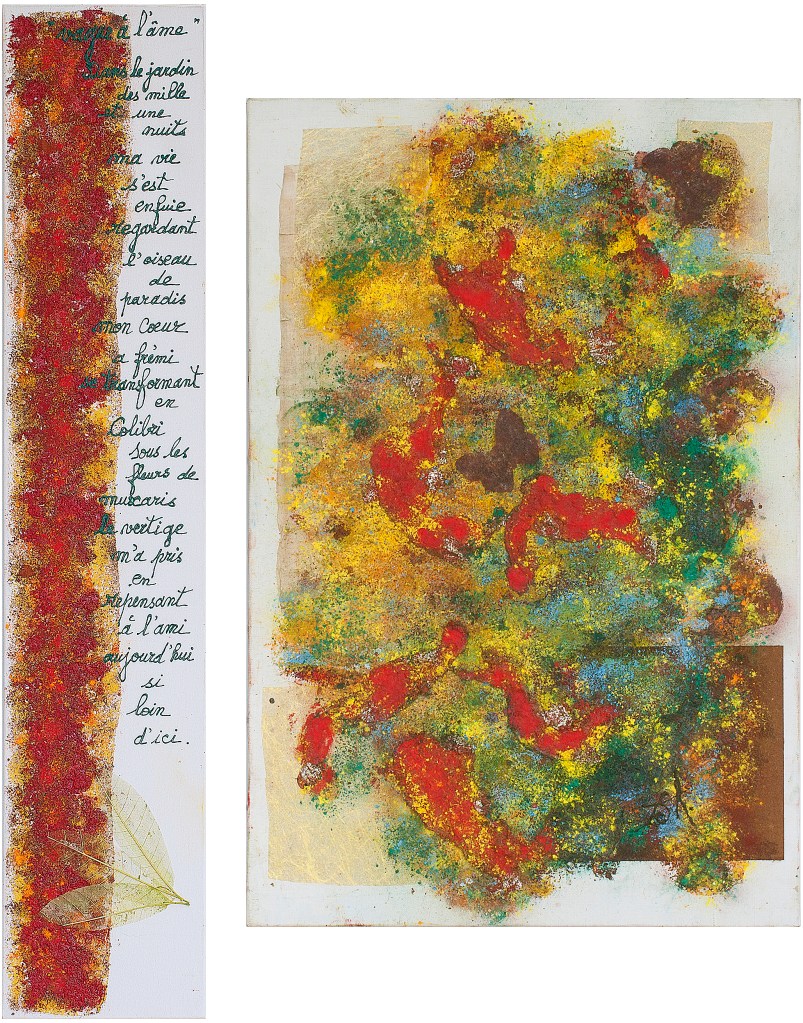 "vague à l'âme"
Dans le jardin
des mille
et une
nuits
ma vie
s'est
enfuie
regardant
l'oiseau
de
paradis
mon Coeur
a frémi
se transformant
en
Colibri
sous les
fleurs de
muscaris
le vertige
m'a pris
en
repensant
à l'ami
aujourd'hui
si
loin
d'ici.